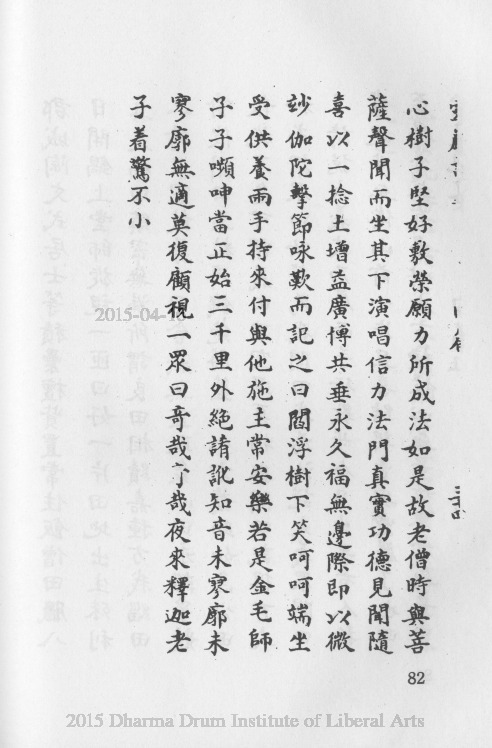 心樹子堅好敷榮願力所成法如是故老僧時與菩
薩聲聞而坐其下演唱信力法門真實功德見聞隨
喜以一捻土增益廣博共垂永久福無邊際即以微
玅伽陀擊節咏歎而記之曰閻浮樹下笑呵呵端坐
受供養兩手持來付與他施主常安樂若是金毛師
子子嚬呻當正始三千里外絶誵訛知音未寥廓未
寥廓無適莫復顧視一眾曰奇哉哉夜來釋迦老
子着驚不小
82
2015-04-1
2015 Dharma Drum Institute of Liberal Arts